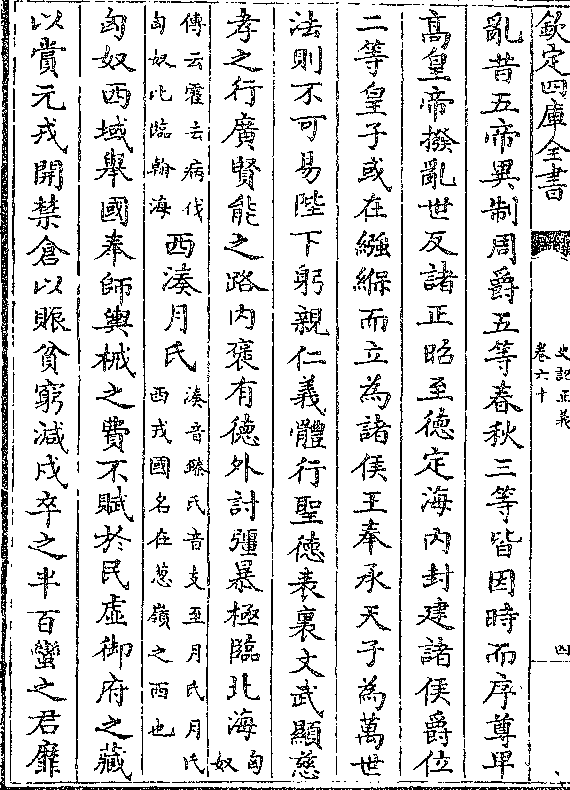 欽定四庫全書
史記正義
卷六十
四
亂昔五帝異制周爵五等春秋三等皆因時而序尊卑
高皇帝撥亂世反諸正昭至德定海內封建諸侯爵位
二等皇子或在繈緥而立為諸侯王奉承天子為萬世
法則不可易陛下躬親仁義體行聖徳表裏文武顯慈
孝之行廣賢能之路內褒有德外討彊暴極臨北海匈
奴
傳云霍去病伐
匈奴北臨翰海
西湊月氏
湊音臻氏音支至月氏月氏
西戎國名在葱嶺之西也
匈奴西域舉國奉師輿械之費不賦於民虛御府之藏
以賞元戎開禁倉以賑貧窮減戍卒之半百蠻之君靡